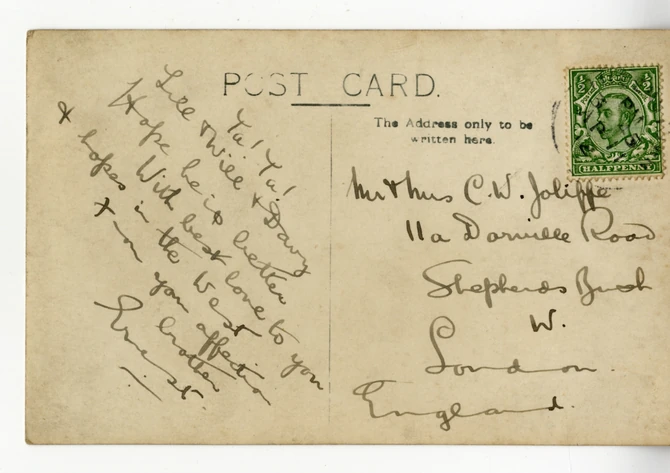 POST CARD.
The Address only to be
written here.
Ta! Ta!
Lill & Will & Davy
Hope he is better
With best love to you
& hopes in the West
you affection
brother
Ernest.
Mr & Mrs C.W. Joliffe
11a Dorville Road
Shepherds Bush
W.
London.
England.
½ ½
HALFPENNY